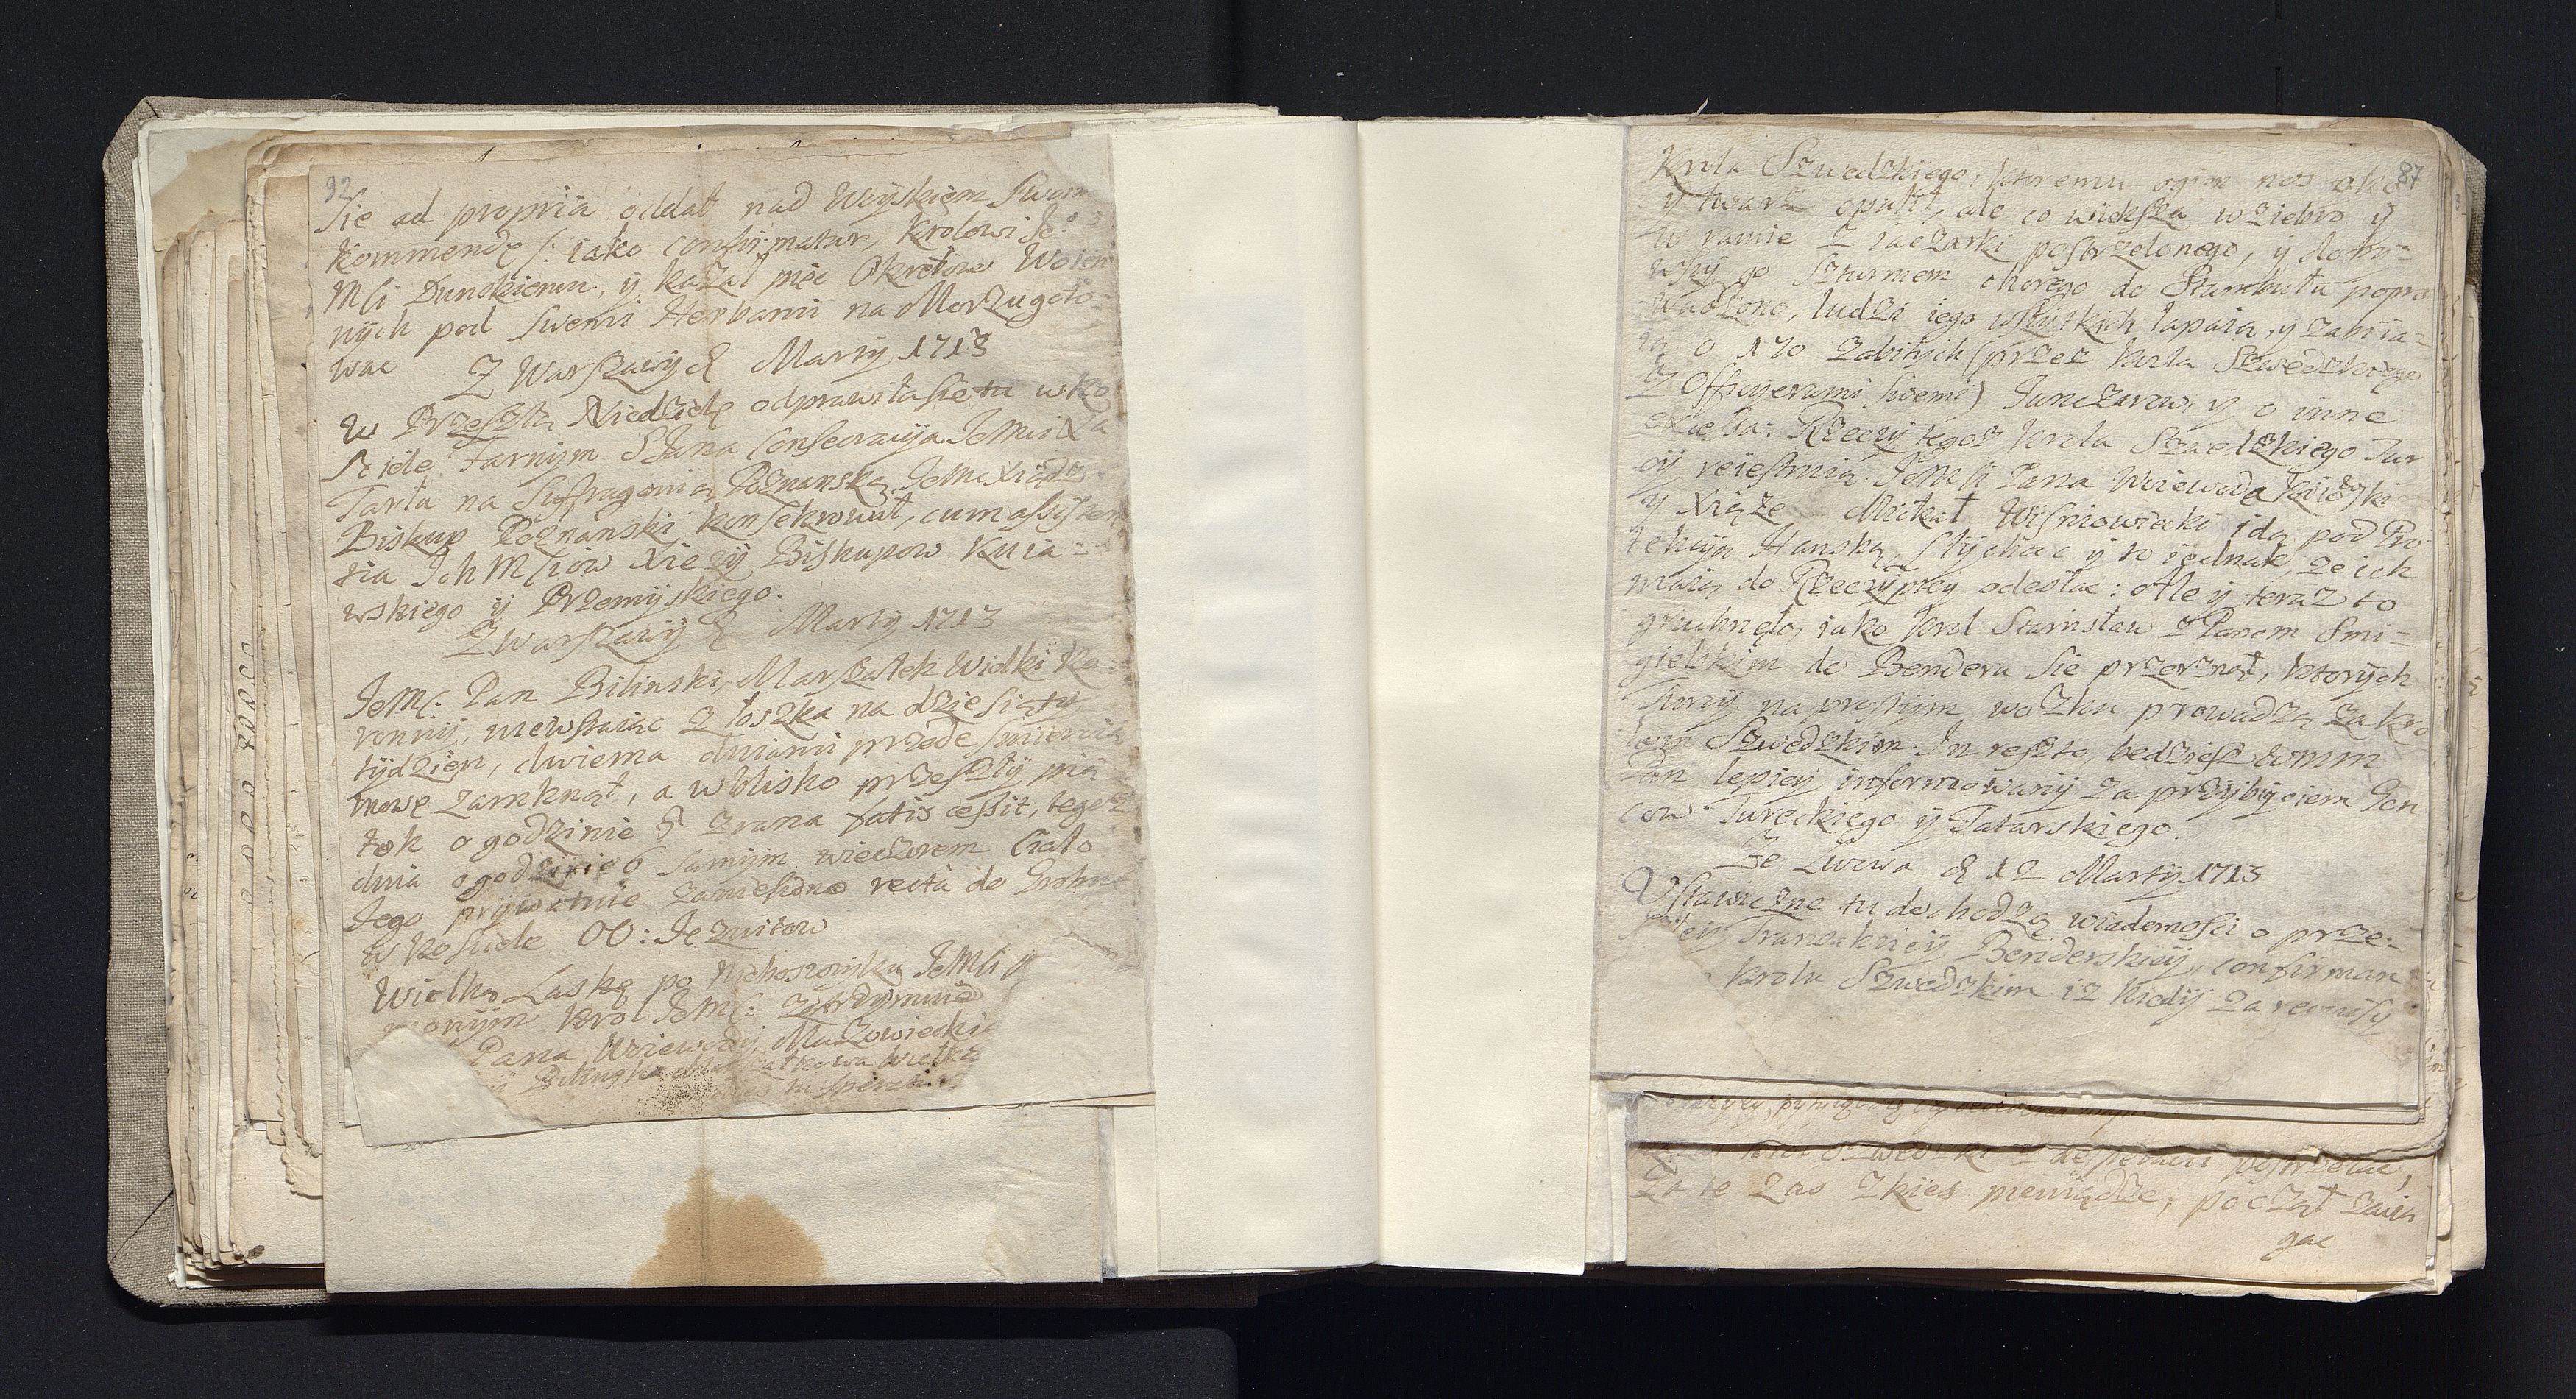 92
Sie ad propria oddał nad Woyskiem Swoim
kommendę /: iako confirmatur, krolowi Je°
Mści Dunskiemu, y kazał pięc Okrętow Woien
nych pod Swemi Herbami na Morzu goto-
wac Z Warszawy d Marty 1713
W Przeszłą Niedzielę odprawiła się tu w ko
sciele Farnym S Jana Consecracya JeMci Xa
Tarła na Suffragonią Poznanską, JeMc Xiądz
Biskup Poznanski konsekrował, cum assisten
tia Ich Mściow Xięży Biskupow Kuia=
wskiego y Przemyskiego.
Z Warszawy d Marty 1713
JeMc: Pan Bilinski, Marszałek Wielki Ko=
ronny, niewstaiąc z łoszka na dziesiąty
tydzien, dwiema dniami przede smiercią
mowę zamknął, a w blisko przeszły pią
tek o godzinie 8 zrana fatis cessit, tegoz
dnia o godzinie 6 samym wieczorem Ciało
Jego prywatnie zaniesiono recta do Grobu
w kosciele OO: Jezuitow
Wielką Laskę po Nieboszczyku JeMści
Krol JeMc:
Pana Woiewody Mazowieckie
87
Krola Szwedzkiego, ktoremu ogien nos oko
y twarz opalił, ale co większa w ziebro y
w ramie z iaczarki postrzelonego, y doby-
wszy go Szturmem chorego do Stambułu popro
wadzono, ludzi iego wszystkich łapaią, y zabiia=
ią o 170 zabitych (przez krola Szwedzkiego
z Officyerami swemi) Janczarow, y o inne
excessa: Rzeczy tegoz krola Szwedzkiego Tur
cy reiestruią. JeMści Pana Woiewodę Kiiowski
y Xiąże Michał Wisniowiecki idą pod Pro
tekcyą Hanską, słychac y to iednak, ze ich
maią do Rzeczyptey odesłac: Ale y teraz to
gruchnęło, iako krol Stanisław z Panem Smi-
gielskim do Bendera sie przerznął, ktorych
Turcy na prostym wozku prowadzą za kro
lem Szwedzkim. In reszto, będziesz WMM
Pan lepiey informowany za przybyciem Gon
cow Tureckiego y Tatarskiego.
Ze Lwowa d 12 Marty 1713
Ustawiczne tu dochodzą wiadomosci o prze=
Tranzakcyi Benderskiey, confirman
krolu Szwedzkim iz kiedy za
postrzelac,
Za te zas zkies pieniądze, począł zacią
gac